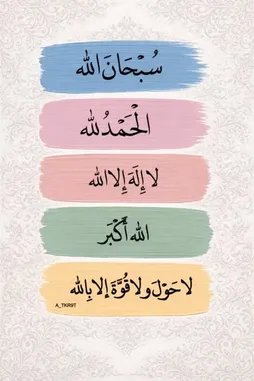 سُبْحَانَ الله
الْحَمْدُ لله
لا إِلَهَ إِلا الله
الله أَكْبَر
لا حَوْلَ ولا قُوَّةَ إلا بِالله
A_TKRST